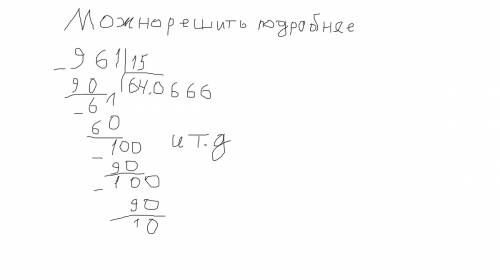 Можно решить подробнее
- 961 | 15
90 | 64.0666
- 61
60
- 100 и т.д
90
- 100
90
10